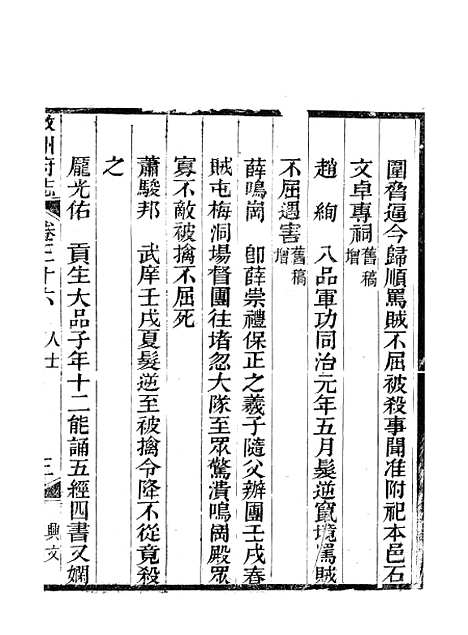 圍脅逼令歸順罵賊不屈被殺事聞准附祀本邑石
文卓專祠舊稿增
趙絢　八品軍功同治元年五月髮逆竄境罵賊
不屈遇害舊稿增
薛鳴崗　卽薛崇禮保正之義子隨父辦團壬戌春
賊屯梅洞場督團往堵忽大隊至眾驚潰鳴崗殿眾
寡不敵被擒不屈死
蕭駿邦　武庠壬戌夏髮逆至被擒令降不從竟殺
之
龐光佑　貢生大品子年十二能誦五經四書又嫻
敘州府志　卷三十六　人士　三　興文